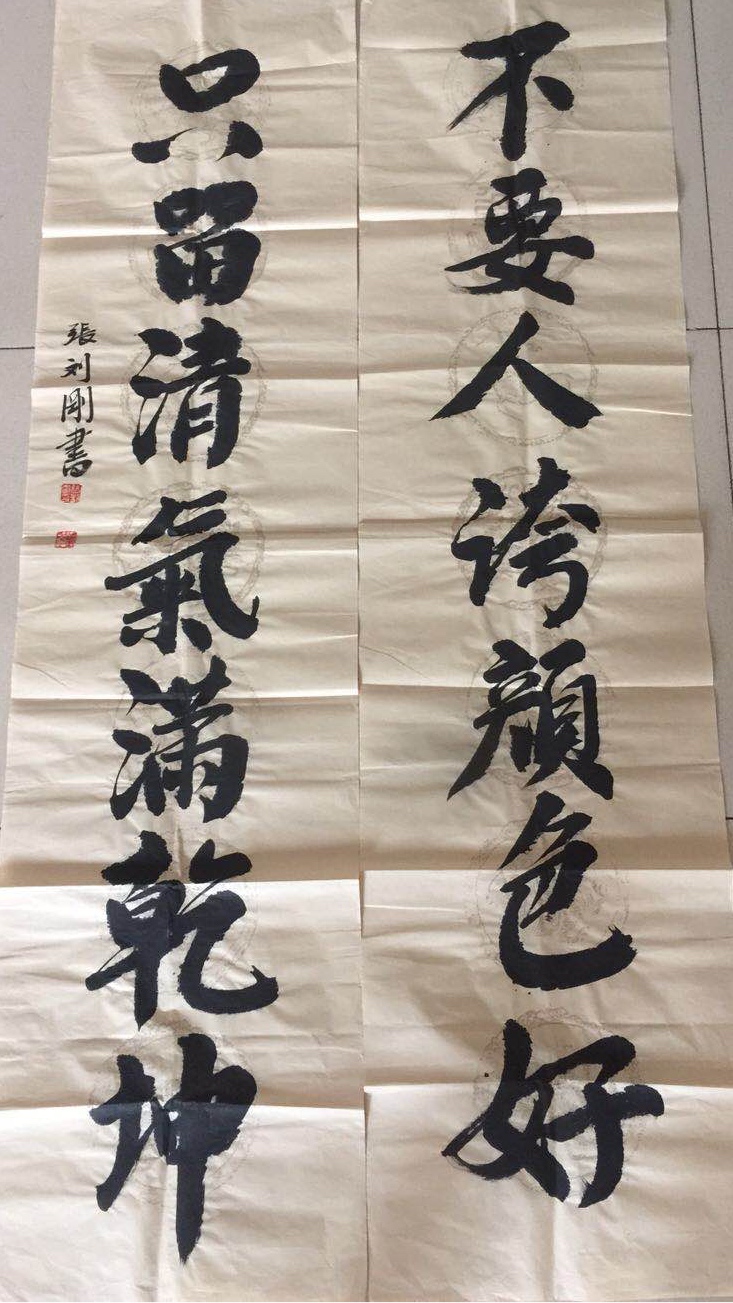 不要人誇顔色好
只留清氣滿乾坤
張刘剛書